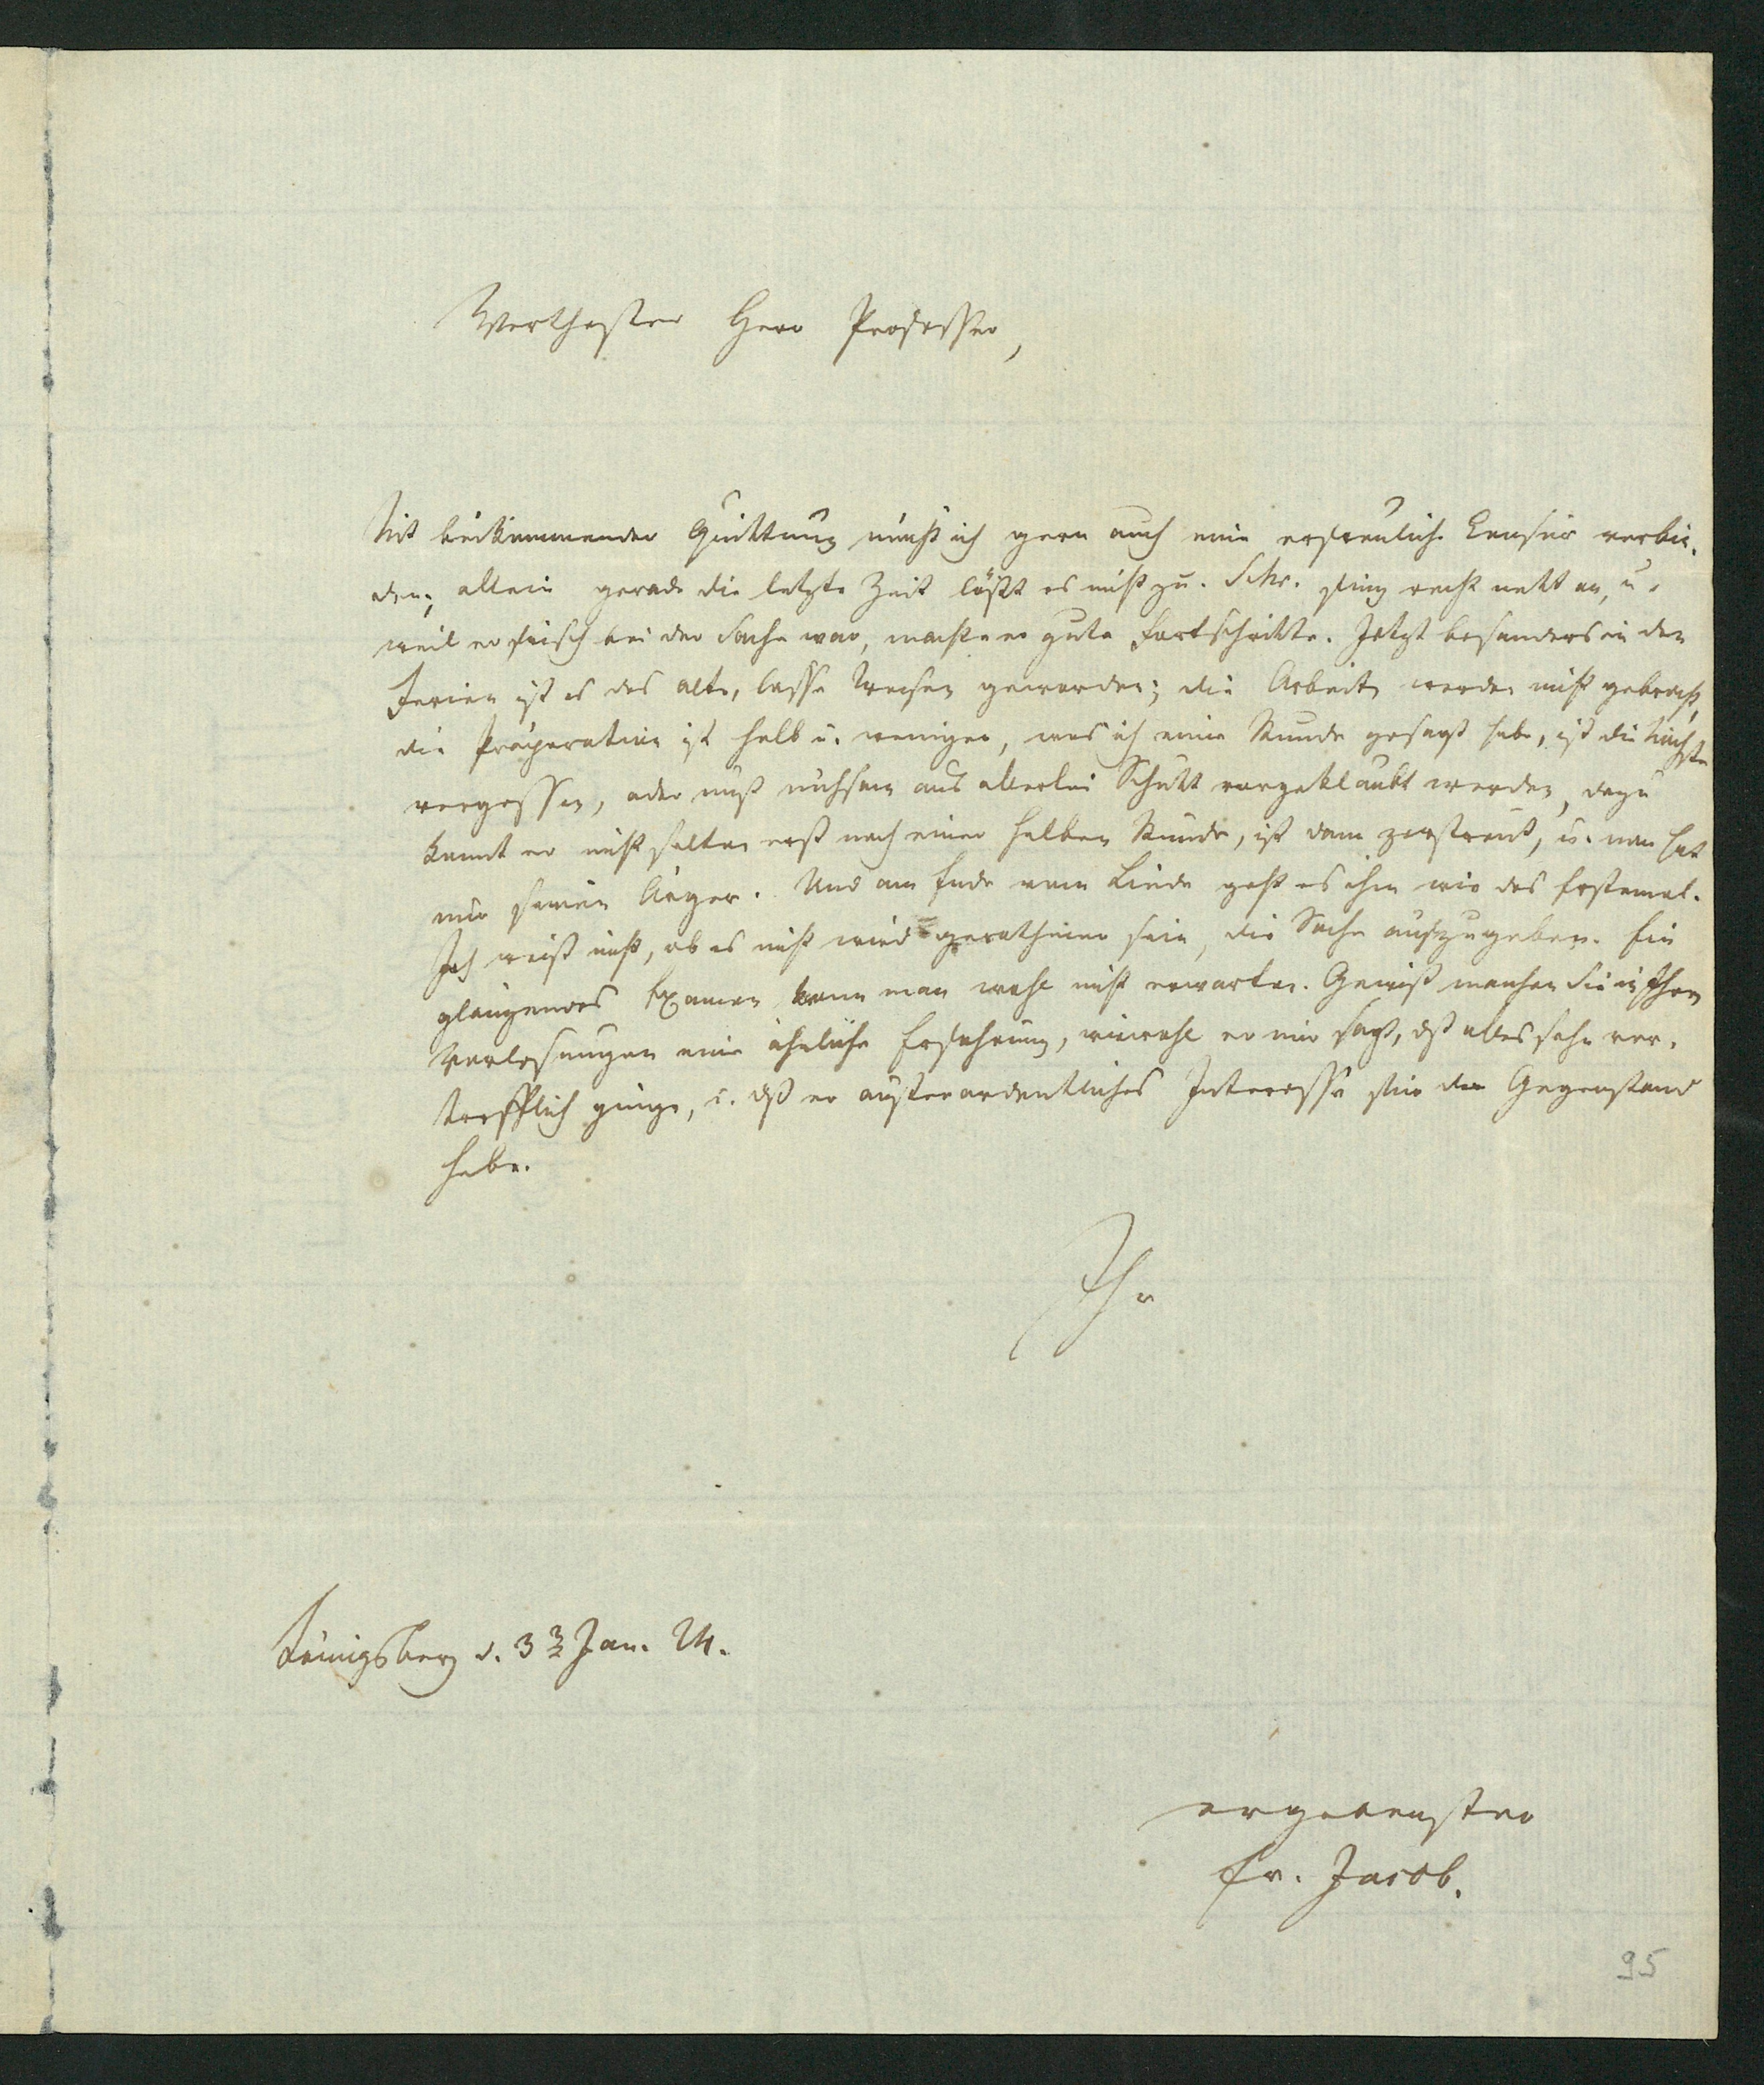 Werthester Herr Professor,
Mit beikommender Quittung möcht ich gern auch eine erfreuliche Censur verbin-
den; allein gerade die letzte Zeit läßt es nicht zu. Schr. fing recht nett an, u.
weil er frisch bei der Sache war, machte er gute Fortschritte. Jetzt besonders in den
Ferien ist es das alte, lasse Wesen geworden; die Arbeiten werden nicht gebracht,
die Präparation ist halb u. weniger, was ich eine Stunde gesagt habe, ist die nächste
vergessen, oder muß mühsam aus allerlei Schutt vorgeklaubt werden, dazu
kommt er nicht selten erst nach einer halben Stunde, ist dann zerstreut, u. man hat
nur seinen Ärger. Und am Ende vom Liede geht es ihm wie das Erstemal.
Ich weiß nicht, ob es nicht wird gerathener sein, die Sache aufzugeben. Ein
glänzendes Examen kann man wohl nicht erwarten. Gewiß machen Sie in Ihren
Vorlesungen eine ähnliche Erfahrung, wiewohl er mir sagt, dß alles sehr vor-
trefflich ginge, u. dß er außerordentliches Interesse für den Gegenstand
habe.
Ihr
Königsberg d. 3 Jan. 24.
ergebenster
Fr. Jacob.
95